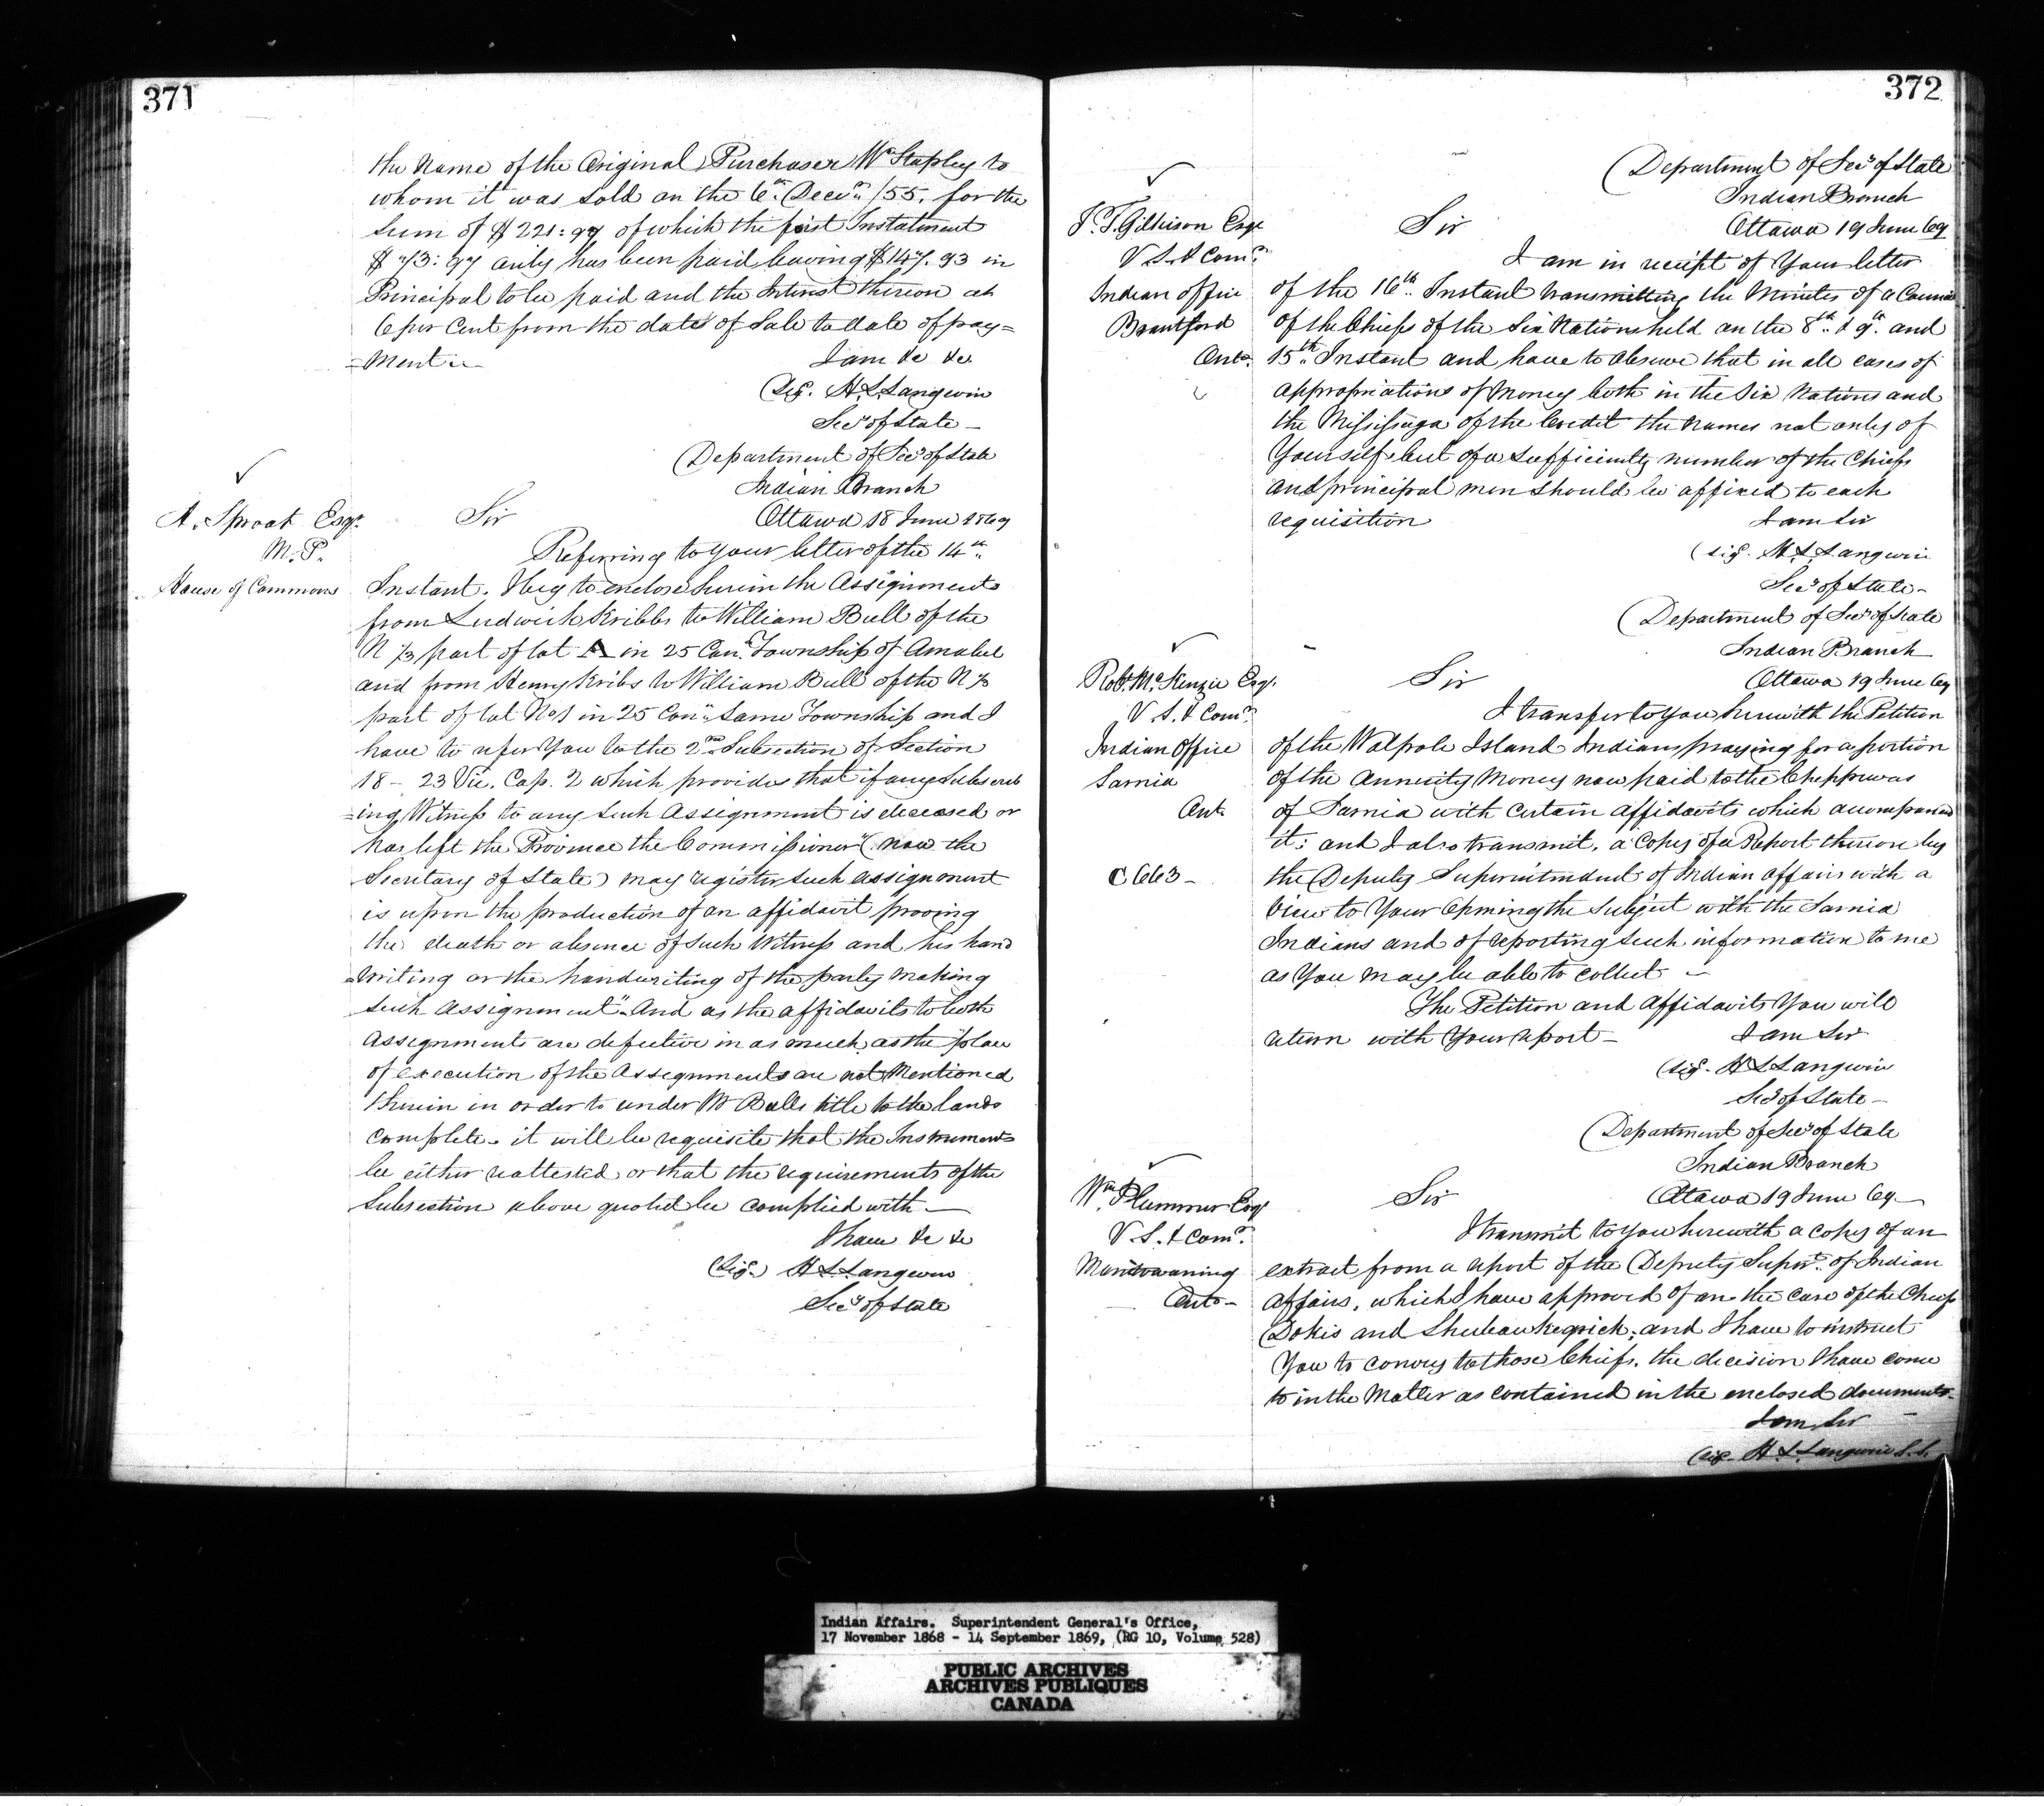 371
the Name of the Original Purchaser Wm Stapley to
whom it was sold on the 6th Decr /55, for the
Sum of $221:97 of which the first Instalment
$73:97 only has been paid leaving $147.93 in
Principal to be paid and the Interest thereon at
6 per Cent from the date of Sale to date of pay=
=ment
I am &c &c
(Sig. H. L. Langevin
Secy of State –
(Department of Secy of State
Indian Branch
Ottawa 18 June 1869
A. Sproat Esqr.
M. P.
House of Commons
Sir
Referring to your letter of the 14th
Instant. I beg to enclose herein the Assignments
from Ludwick Kribbs to William Bull of the
N 1/3 part of lot A in 25 Con. Township of Amabel
and from Henry Kribs to William Bull of the N 1/3
part of lot No 1 in 25 Con. same Township and I
have to refer You to the 2nd Subsection of Section
18 – 23 Vic. Cap. 2 which provides that if any Subscrib
=ing Witness to any such Assignment is deceased or
has left the Province the Commissioner (now the
Secretary of State) may register such assignment
is upon the production of an affidavit proving
the death or absence of such Witness and his hand
=writing or the handwriting of the party making
such assignment" And as the affidavits to both
Assignments are defective in as much as the place
of execution of the Assignments are not Mentioned
therein in order to render Mr Bulls title to the lands
complete – it will be requisite that the Instruments
be either reattested or that the requirements of the
Subsection above quoted be complied with –
I have &c &c
(Sig.) H L Langevin
Secy of State
372
(Department of Secy of State
Indian Branch
Ottawa 19 June 69
J. T. Gilkison Esqr
V. S. & Comr.
Indian Office
Brantford
Ont.
Sir
I am in receipt of Your letter
of the 16th Instant transmitting the Minutes of a Council
of the Chiefs of the Six Nations held on the 8th & 9th and
15th Instant and have to observe that in all cases of
appropriations of Money both in the Six Nations and
the Mississaga of the Credit the names not only of
Yourself but of a sufficiently number of the Chiefs
and principal men should be affixed to each
requisition
I am Sir
(sig. H L Langevin
Secy of State –
(Department of Secy of State
Indian Branch
Ottawa 19 June 69
Robt. McKenzie Esqr.
V S. & Comr.
Indian Office
Sarnia
Ont.
C 663 –
Sir
I transfer to you herewith the Petition
of the Walpole Island Indians praying for a portion
of the Annuity Money now paid to the Cheppewas
of Sarnia with certain affidavits which accompanied
it: and I also transmit, a Copy of a Report thereon by
the Deputy Superintendent of Indian Affairs with a
View to Your opening the Subject with the Sarnia
Indians and of reporting such information to me
as You may be able to collect –
The Petition and Affidavits You will
return with Your report –
I am Sir
(sig. H L Langevin
Secy of State –
(Department of Secy of State
Indian Branch
Ottawa 19 June 69 –
Wm. Plummer Esqr
V. S. & Comr.
Manitowaning
Onto –
Sir
I transmit to you herewith a copy of an
extract from a report of the Deputy Supt. of Indian
Affairs, which I have approved of on the case of the Chiefs
Dokis and and I have to instruct
You to convey to those Chiefs, the decision I have come
to in the Matter as contained in the enclosed documents.
I am Sir
(sig. H. L. Langevin S. S.
Indian Affairs. Superintendent General's Office,
17 November 1868 - 14 September 1869, (RG 10, Volume 528)
PUBLIC ARCHIVES
ARCHIVES PUBLIQUES
CANADA